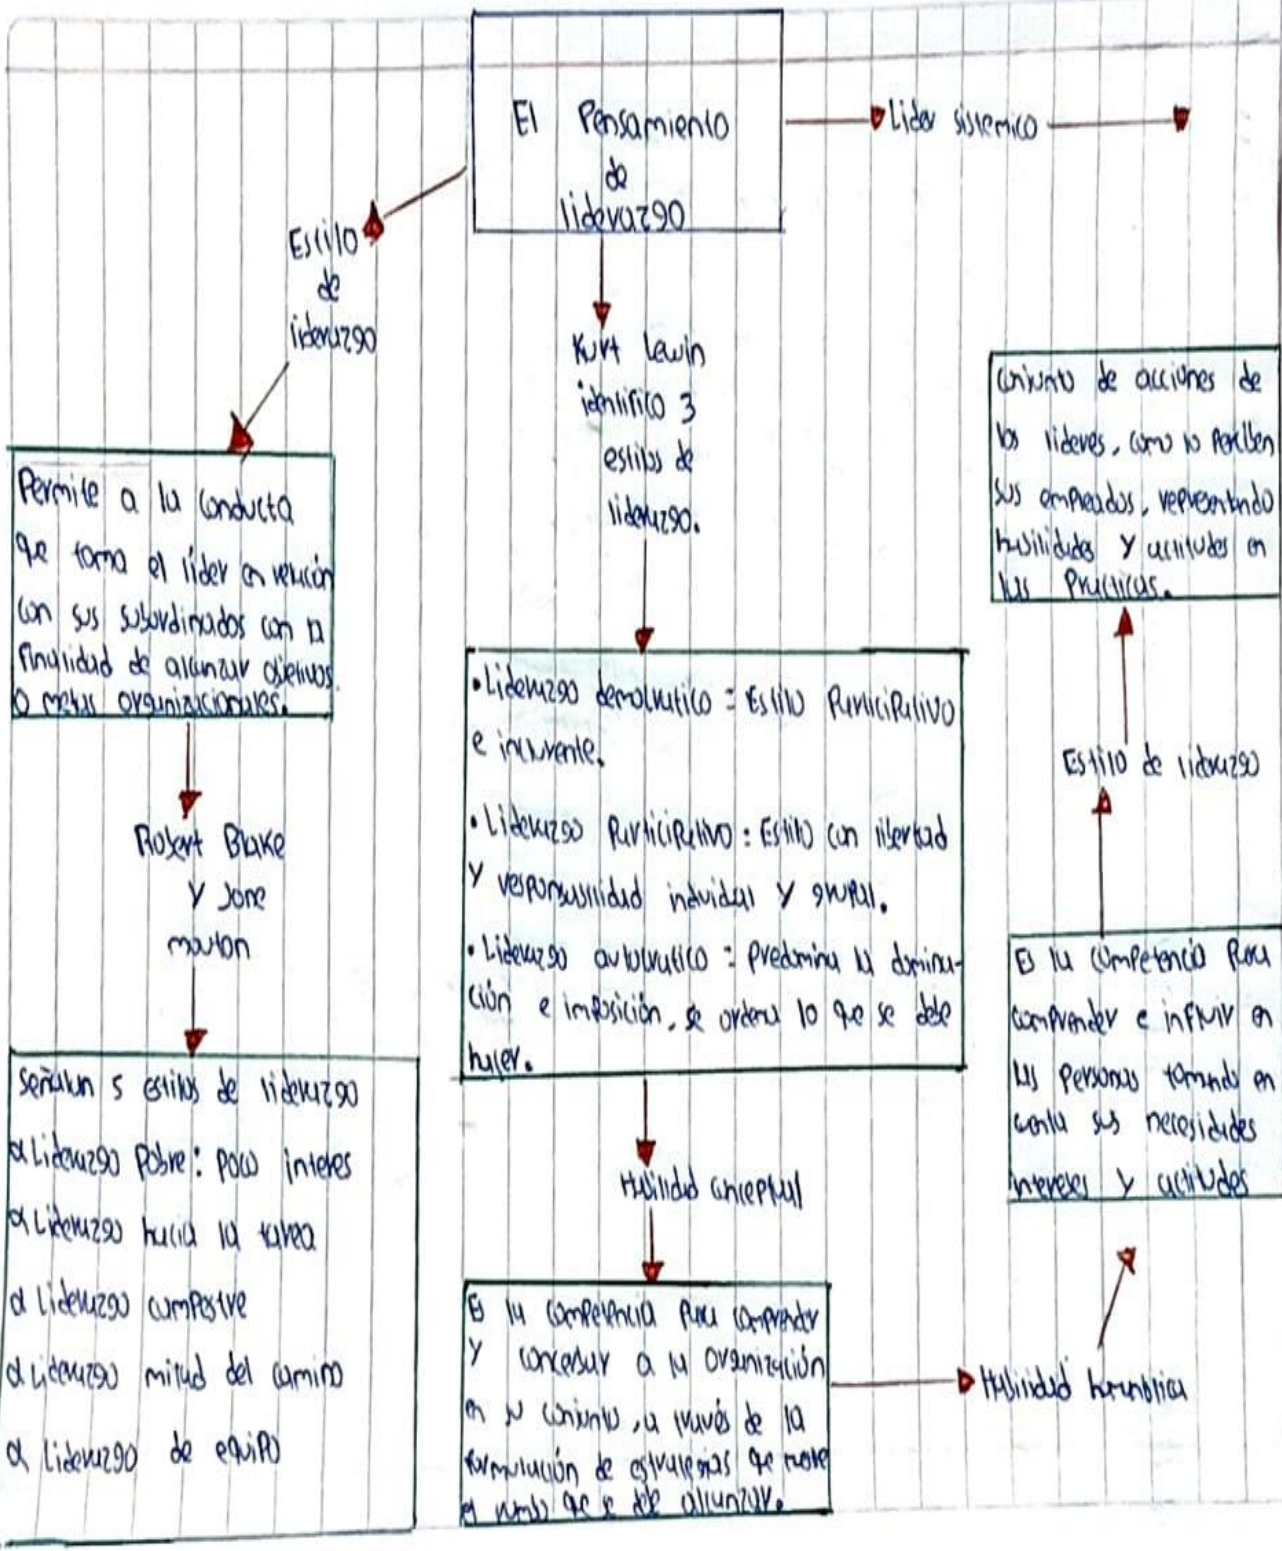 El Pensamiento
de
liderazgo
Lider sistemico
Estilo
de
liderazgo
Permite a la conducta
que toma el líder en relación
con sus subordinados con la
finalidad de alcanzar objetivos
o metas organizacionales.
Robert Blake
y Jone
mouton
señalan 5 estilos de liderazgo
Liderazgo Pobre: poco interes
Liderazgo hacia la tarea
Liderazgo campestre
Liderazgo mitad del camino
Liderazgo de equipo
Kurt Lewin
identifico 3
estilos de
liderazgo.
• Liderazgo democratico = Estilo Participativo
e
• Liderazgo Participativo: Estilo con libertad
y responsabilidad individal y grupal.
• Liderazgo autocratico = Predomina la domina-
ción e imposición, se ordena lo que se debe
hacer.
Habilidad conceptual
Es la competencia para comprender
y a la organización
en su conjunto, a través de la
formulación de estrategias que
el rumbo que se debe alcanzar.
Habilidad
Es la competencia para
comprender e influir en
las personas tomando en
cuenta sus necesidades
intereses y actitudes
Estilo de liderazgo
conjunto de acciones de
los lideres, como lo perciben
sus empleados, representando
habilidades y actitudes en
las Practicas.